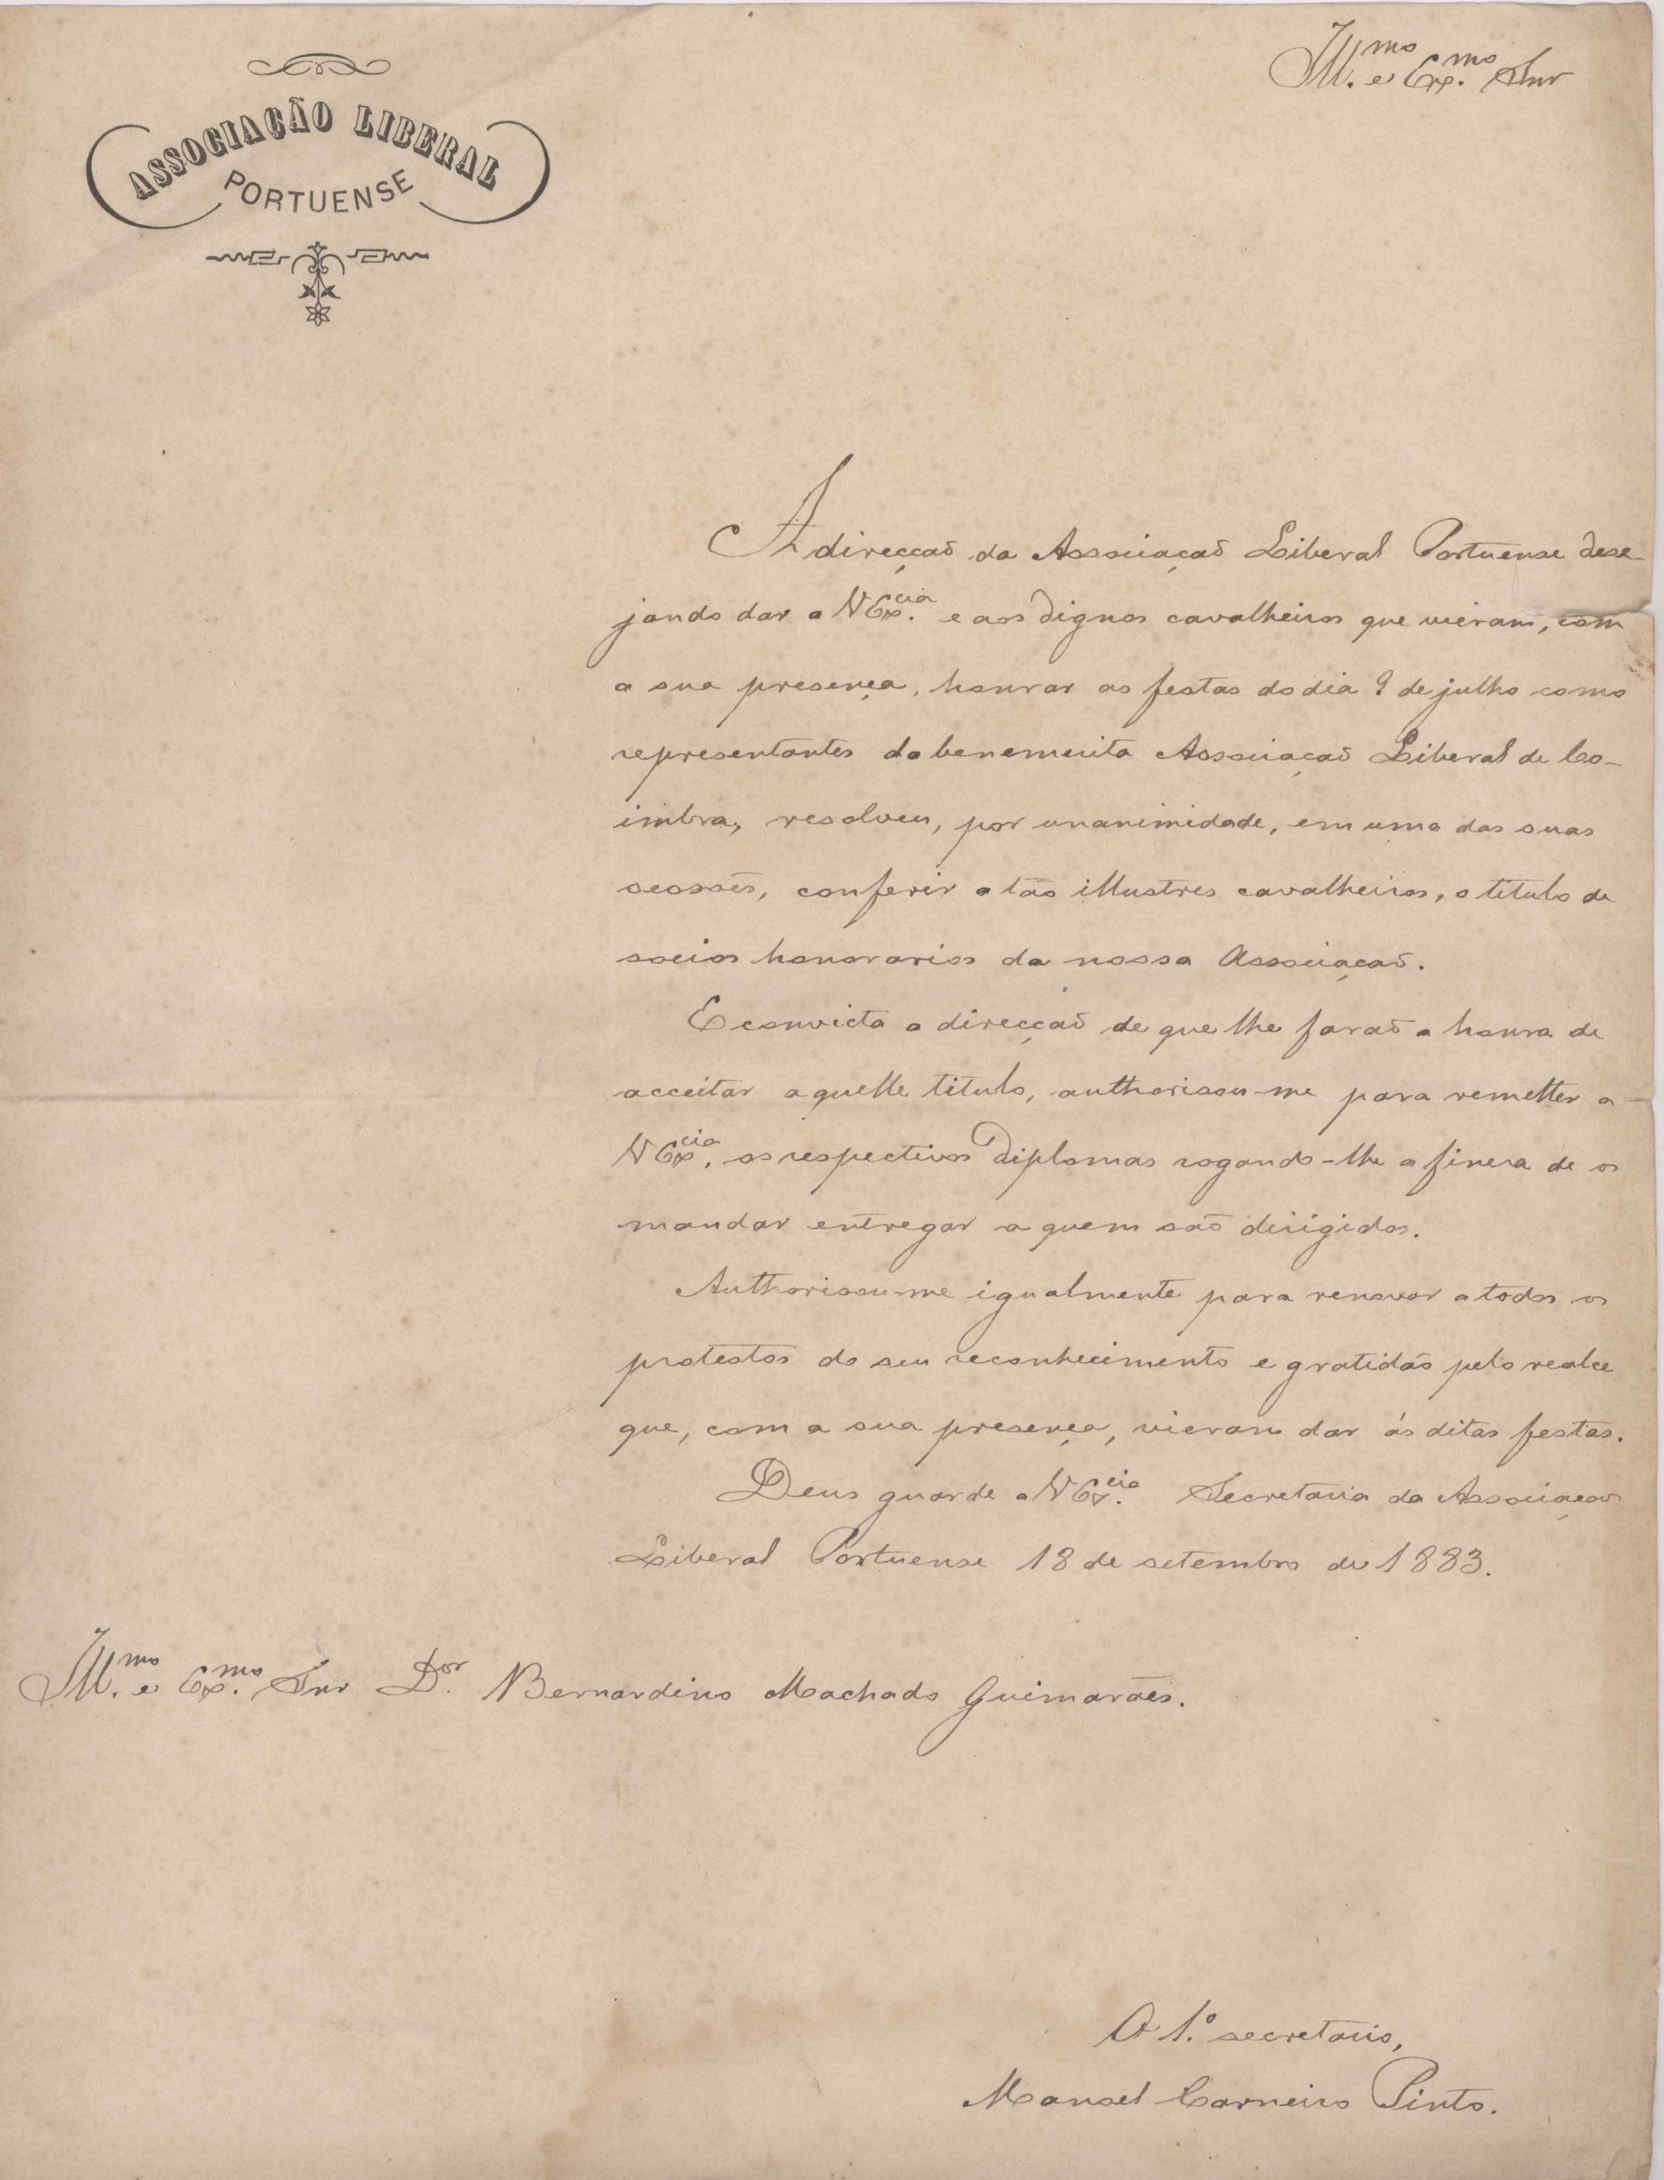 ASSOCIAÇÃO LIBERAL
PORTUENSE
Ill.mo e Ex.mo Snr
A direcçaõ da Associaçaõ Liberal Portuense dese-
jando dar a V Ex.cia e aos dignos cavalheiros que vieram, com
a sua presença, honrar as festas do dia 9 de julho como
representantes da benemerita Associaçaõ Liberal de Co-
imbra, resolveu, por unanimidade, em uma das suas
sessoẽs, conferir a taõ illustres cavalheiros, o titulo de
socios honorarios da nossa Associaçaõ.
E convicta a direcçaõ de que lhe faraõ a honra de
acceitar aquelle titulo, authorisou-me para remetter a
V Ex.cia, os respectivos Diplomas rogando-lhe a fineza de os
mandar entregar a quem saõ dirigidos.
Authorisou-me igualmente para renovar a todos os
protestos do seu reconhecimento e gratidaõ pelo realce
que, com a sua presença, vieram dar ás ditas festas.
Deus guarde a V Ex.cia Secretaria da Associaçaõ
Liberal Portuense 18 de setembro de 1883.
Ill.mo e Ex.mo Snr D.or Bernardino Machado Guimarães.
O 1.º secretario,
Manoel Carneiro Pinto.